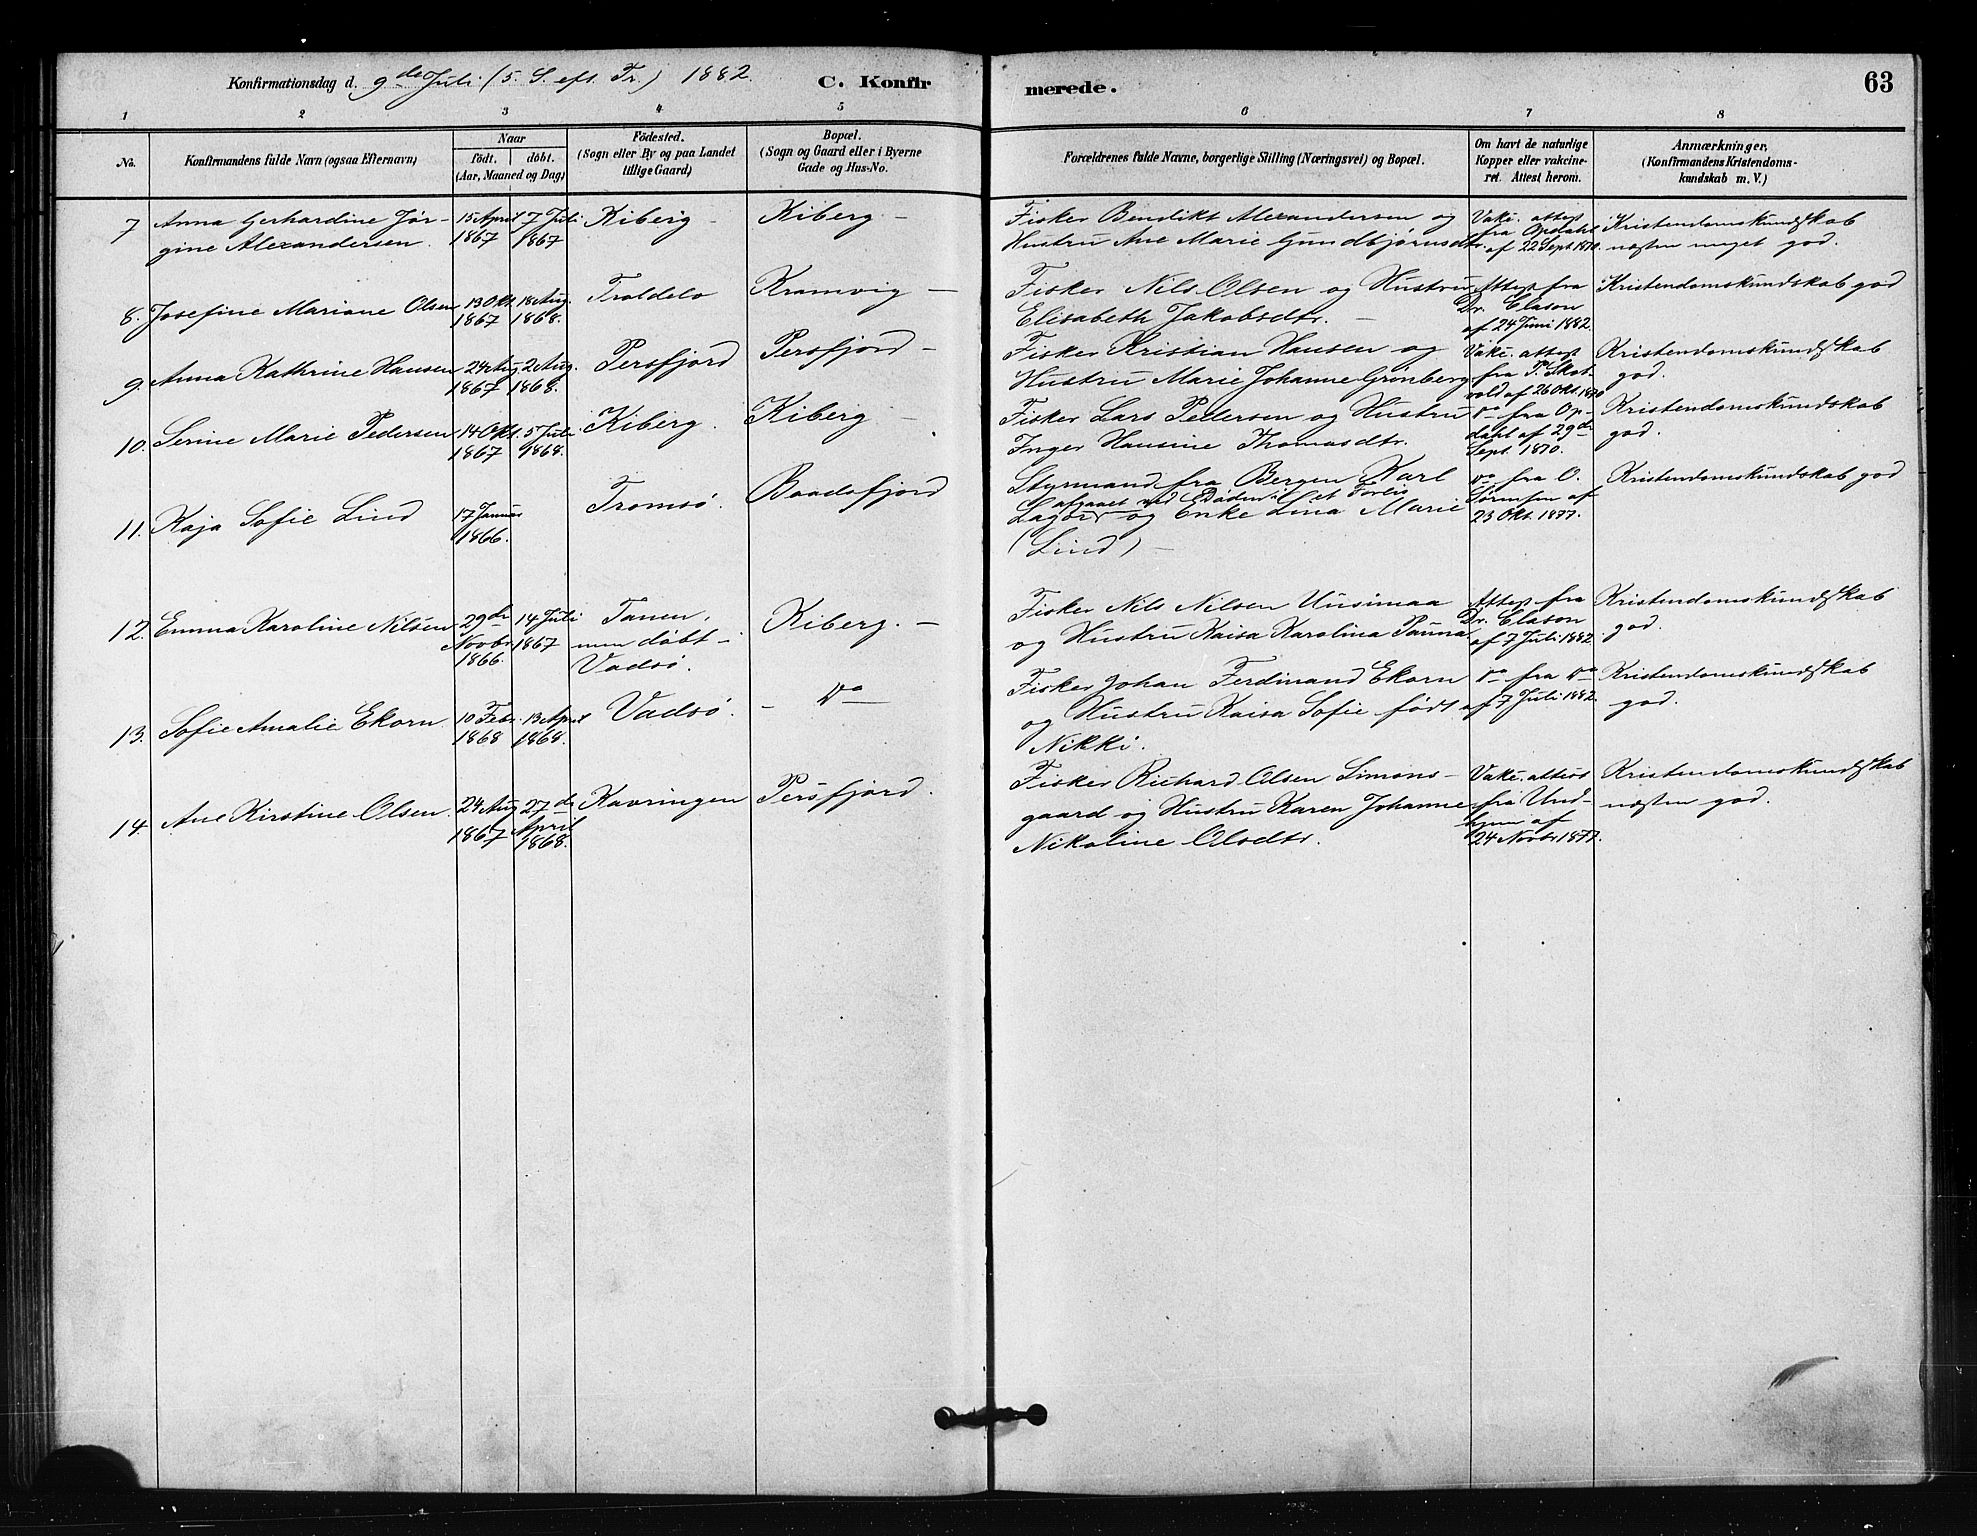 Konfirmationsdag d. 9de Juli (5. S. eft. Tr.) 1882. C. Konfir merede. 63
1 2 3 4 5 6 7 8
No. Konfirmandens fulde Navn (ogsaa Efternavn)
Naar
födt. döbt.
(Aar, Maaned og Dag)
Födested.
(Sogn eller By og paa Landet
tillige Gaard)
Bopæl.
(Sogn og Gaard eller i Byerne
Gade og Hus-No.
Forældrenes fulde Navne, borgerlige Stilling (Næringsvei) og Bopæl.
Om havt de naturlige
Kopper eller vakcine-
ret. Attest herom.
Anmærkninger,
(Konfirmandens Kristendoms-
kundskab m. V.)
7 Anna Gerhardine Jör-
gine Alexandersen.
15 April
1867
7 Juli
1867
Kiberg -
Kiberg -
Fisker Bendikt Alexandersen og
Hustru Ane Marie Gundbjörnsdtr.
Vakc. attest
fra Opdahl
af 22 Sept 1870.
Kristendomskundskab
næsten meget god.
8. Josefine Mariane Olsen
13 Okt.
1867
18 Aug.
1868.
Kramvig -
Fisker Nils Olsen og Hustru
Elisabeth Jakobsdtr. -
Attest fra
Dr. Clason
af 24 Juni 1882.
Kristendomskundskab god
9 Anna Kathrine Hansen
24 Aug
1867
2 Aug.
1868.
Persfjord
Persfjord -
Fisker Kristian Hansen og
Hustru Marie Johanne Grönberg
Vakc. attest
fra P. Skot-
vold af 26 Okt. 1870
Kristendomskundskab
god.
10. Serine Marie Pedersen
14 Okt.
1867
5 Juli
1868.
Kiberg.
Kiberg -
Fisker Lars Pedersen og Hustru
Inger Hansine Thomasdtr.
Do fra Op-
dahl af 29de
Sept. 1870.
Kristendomskundskab
god.
11. Kaja Sofie Lind
17 Januar
1866.
Tromsö.
Baadsfjord
Styrmand fra Bergen Karl
afgaaet ved Döden i et Forlis
og Enke Lina Marie
(Lind) -
Do fra O.
af
23 Okt. 1877.
Kristendomskundskab god
12. Emma Karoline Nilsen
29de
Novbr
1866.
14 Juli
1867
Tanen,
men döbt i
Vadsö.
Kiberg. -
Fisker Nils Nilsen Uusimaa
og Hustru Kaisa Karolina Pauna
Attest fra
Dr. Clason
af 7 Juli 1882
Kristendomskundskab
god.
13. Sofie Amalie Ekorn
10 Febr.
1868
13 April
1868.
Vadsö.
- Do -
Fisker Johan Ferdinand Ekorn
og Hustru Kaisa Sofie födt
Nikki.
Do fra Do
af 7 Juli 1882.
Kristendomskundskab
god.
14 Ane Kirstine Olsen
24 Aug
1867
27de
April
1868.
Kavringen
Persfjord.
Fisker Richard Olsen Simons-
gaard og Hustru Karen Johanne
Nikoline Olsdtr.
Vakc. attest
fra Und-
hjem af
24 Novbr 1877.
Kristendomskundskab
næsten god.